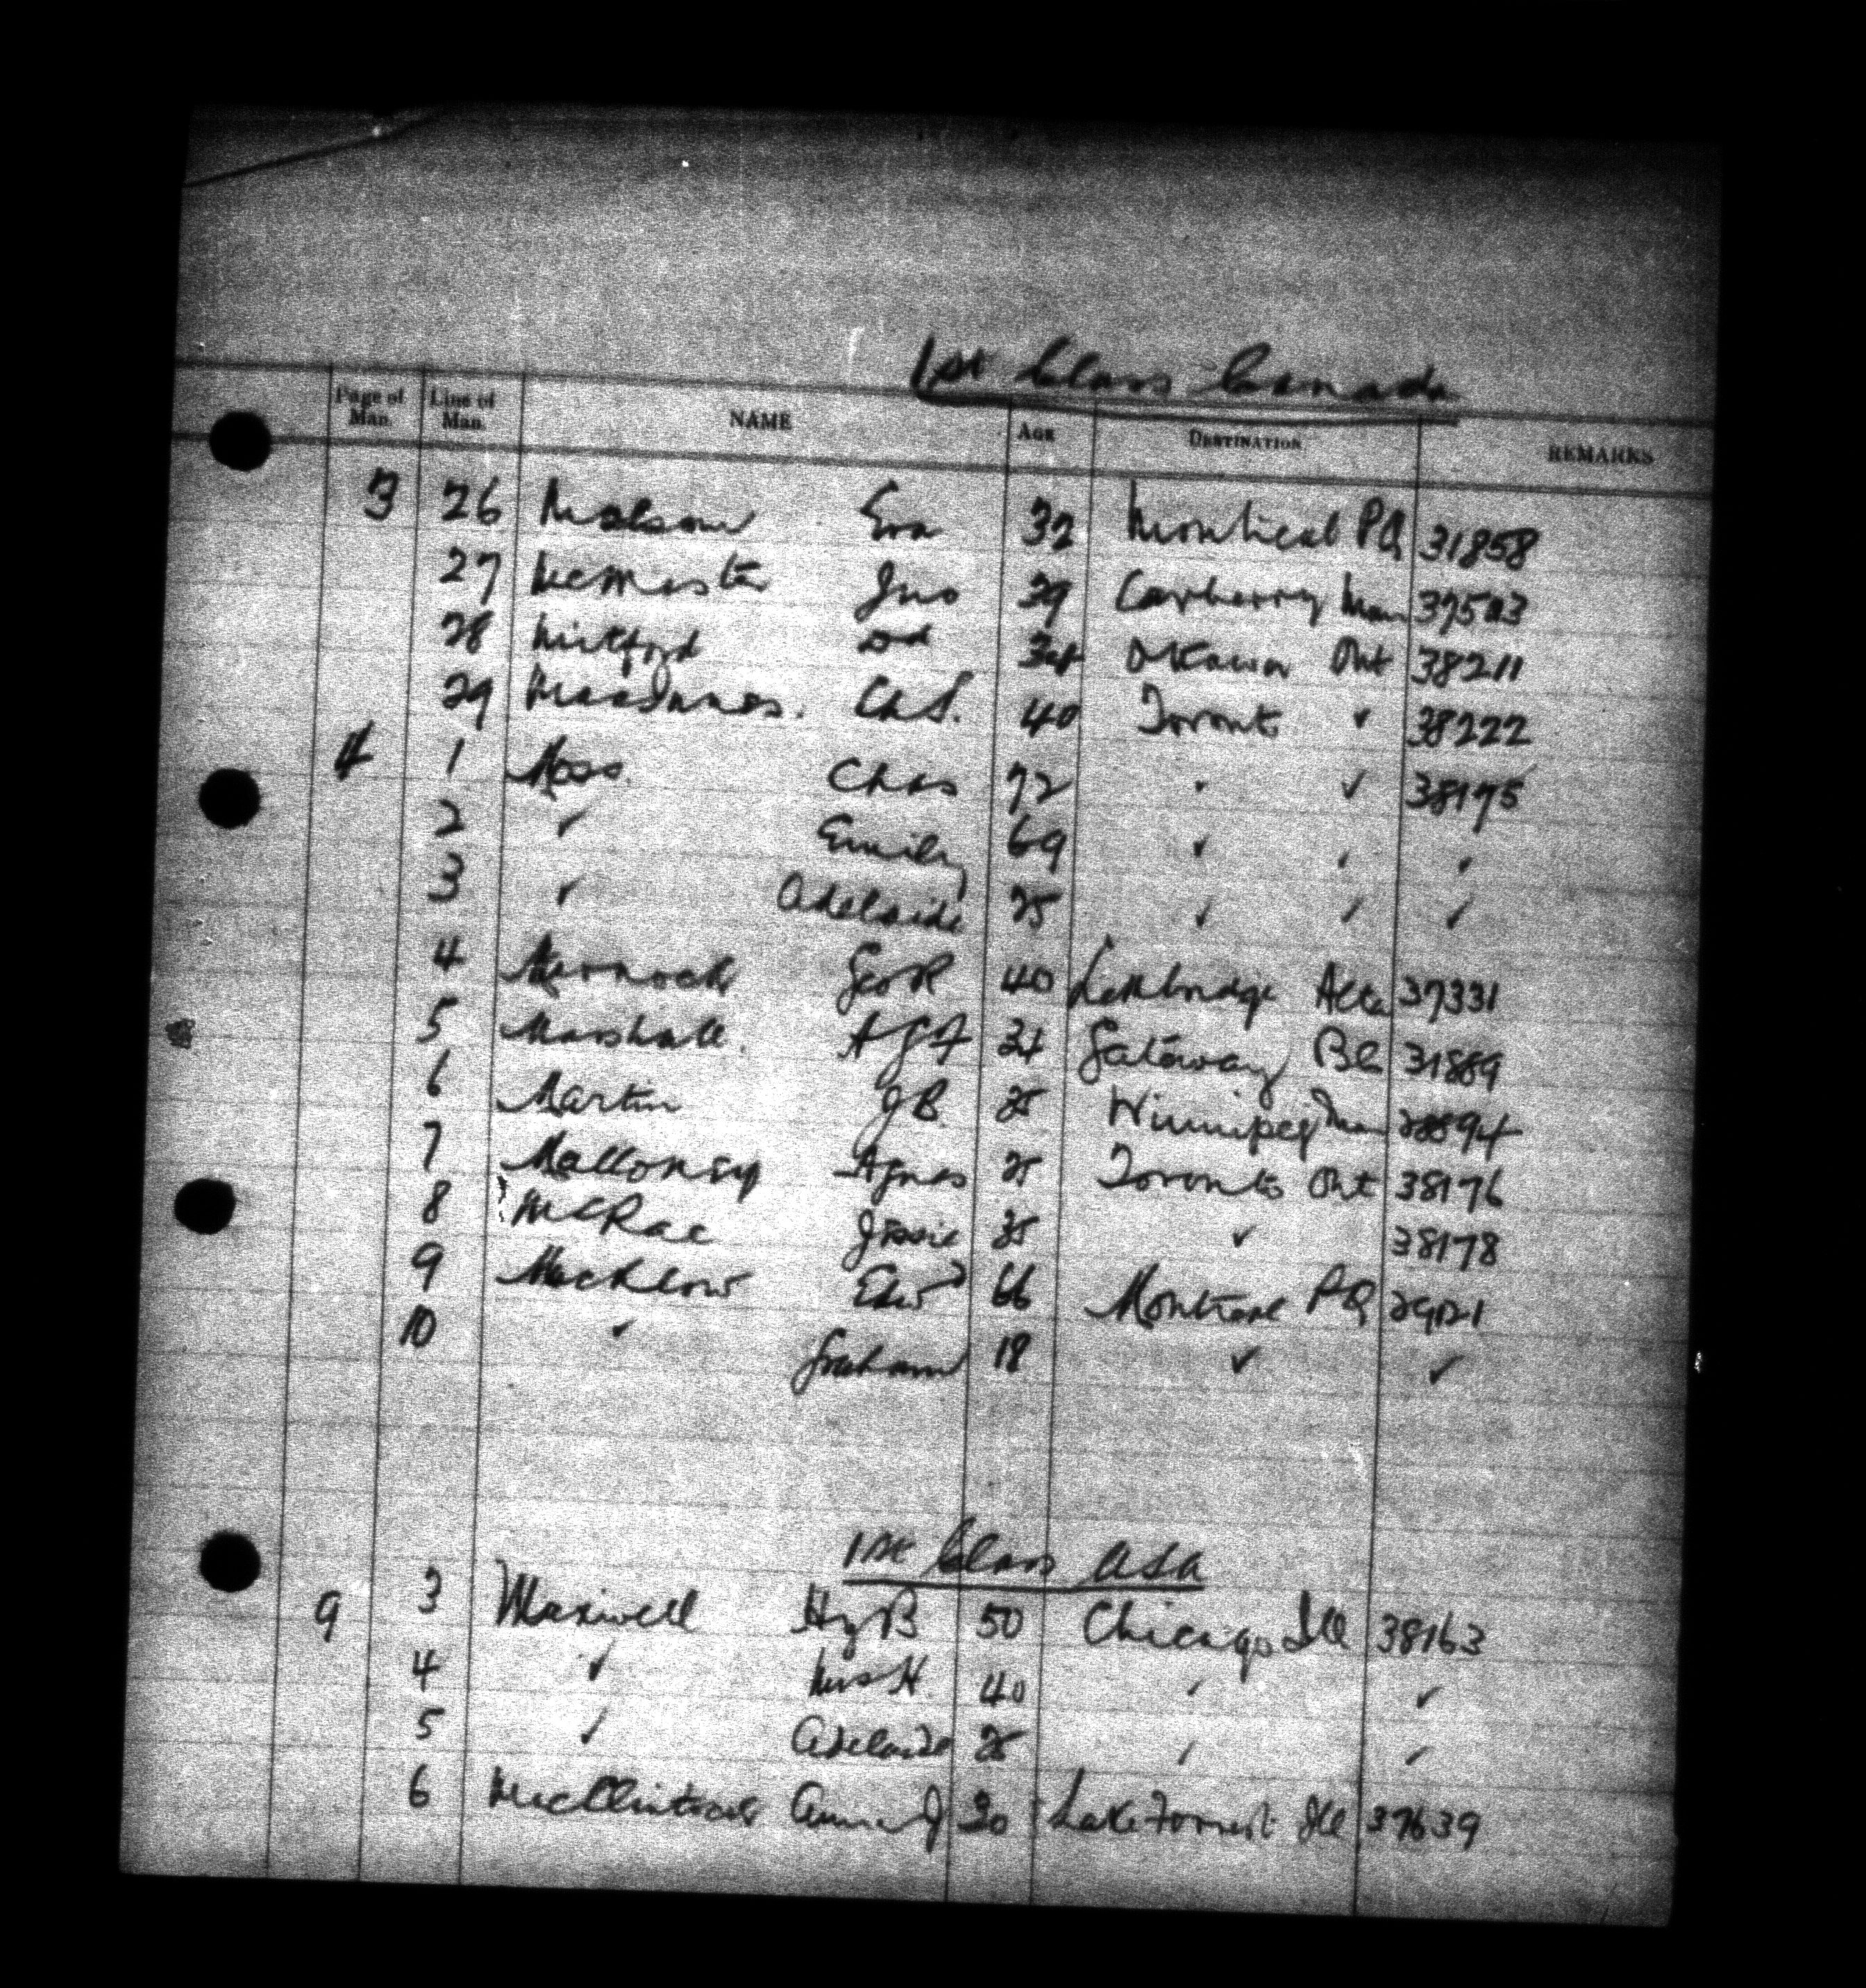 1st Class Canada
Page of Man. Line of Man. NAME AGE DESTINATION REMARKS
3 26 Molson Eva 32 Montreal PQ 31858
27 McMaster Jno 39 Carberry Man
28 Mitford 34 Ottawa Ont 38211
29 MacInnes. Chs. 40 Toronto ✓ 38222
4 1 Moss. Chas 72 " ✓ 38175
2 ✓ Emily 69 ✓ ✓ ✓
3 ✓ Adelaide 25 ✓ ✓ ✓
4 Geo R 40 Lethbridge Alta 37331
5 Marshall. 34 Gateway BC 31889
6 Martin JB 25 Winnipeg Man
7 Malloney Agnes 25 Toronto Ont 38176
8 McRae Jessie 35 ✓ 38178
9 Macklow Edwd 66 Montreal PQ
10 ✓ Graham 18 ✓ ✓
1st Class USA
9 3 Maxwell Hy B 50 Chicago Ill 38163
4 ✓ Mrs H. 40 ✓ ✓
5 ✓ Adelaide 25 ✓ ✓
6 McClintock Anne J 30 Lake Forrest Ill 37639